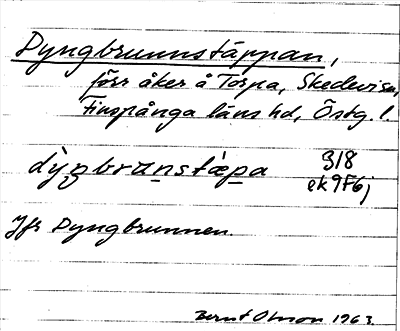 Dyngbrunnstäppan,
förr åker å Torpa, Skedevi sn,
Finspånga läns hd, Östg. l.
dỳŋbrωnstæ̀pa 3/8
ek9F6j
Jfr Dyngbrunnen
Bernt Olsson 1963